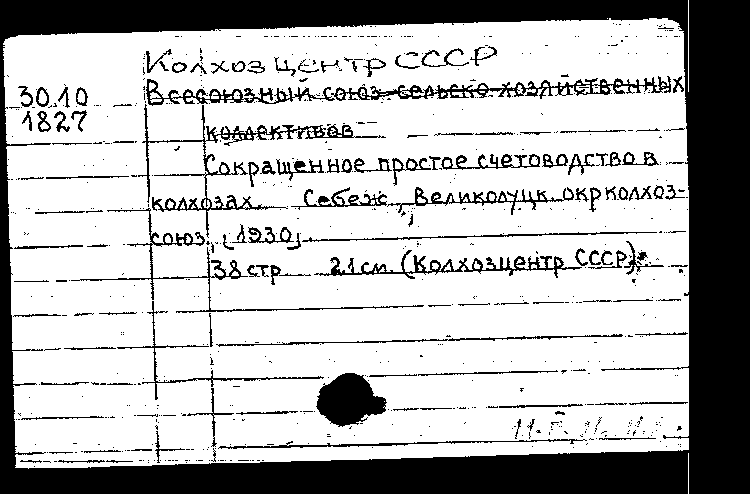 Колхозцентр СССР
30.10
1827
Всесоюзный союз сельско-хозяйственных
коллективов
Сокращенное простое счетоводство в
колхозах. Себеж, Великолуцк. окрколхоз-
союз, [1930].
38 стр 21 см. (Колхозцентр СССР).